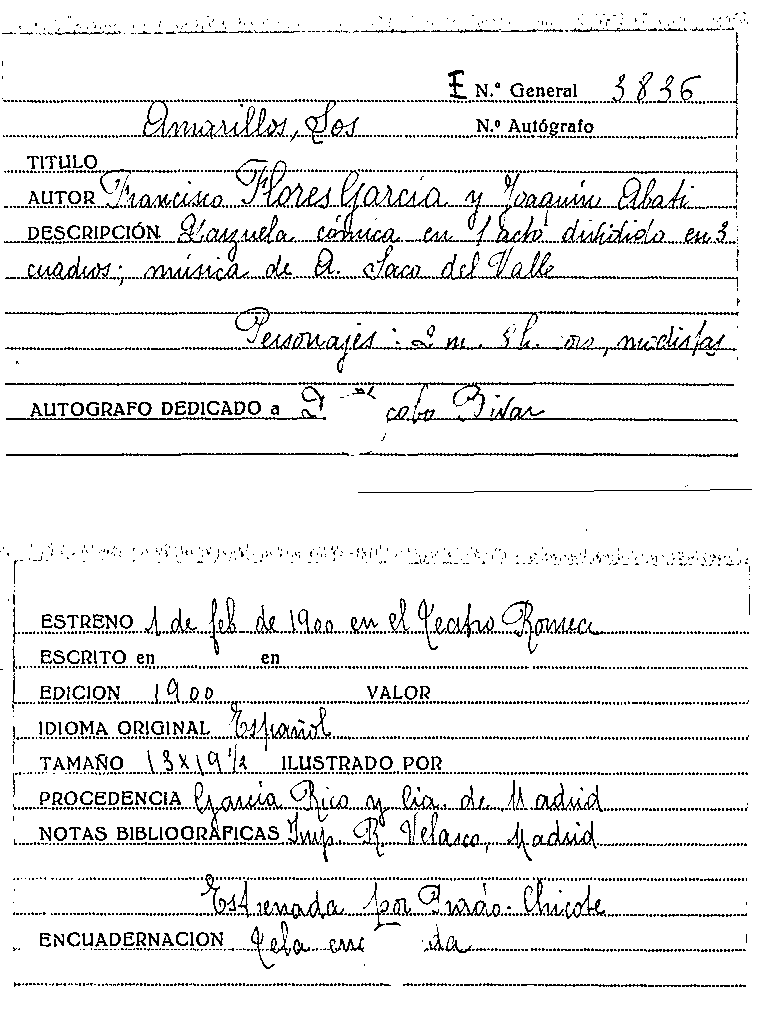 E N.º General 3836
Amarillos, Los
N.º Autógrafo
TITULO
AUTOR Francisco Flores García y Joaquín Abati
DESCRIPCIÓN Zarzuela cómica en 1 acto dividido en 3
cuadros; música de A. Saco del Valle
Personajes: 2 m. 8 h. oro, modistas
AUTOGRAFO DEDICADO a
ESTRENO 1 de feb de 1900 en el Teatro Romea
ESCRITO en en
EDICION 1900 VALOR
IDIOMA ORIGINAL Español
TAMAÑO 13 x 19 1/2 ILUSTRADO POR
PROCEDENCIA García Rico y Cia. de Madrid
NOTAS BIBLIOGRÁFICAS Imp. R. Velasco, Madrid
Estrenada por Prado-Chicote
ENCUADERNACION Tela